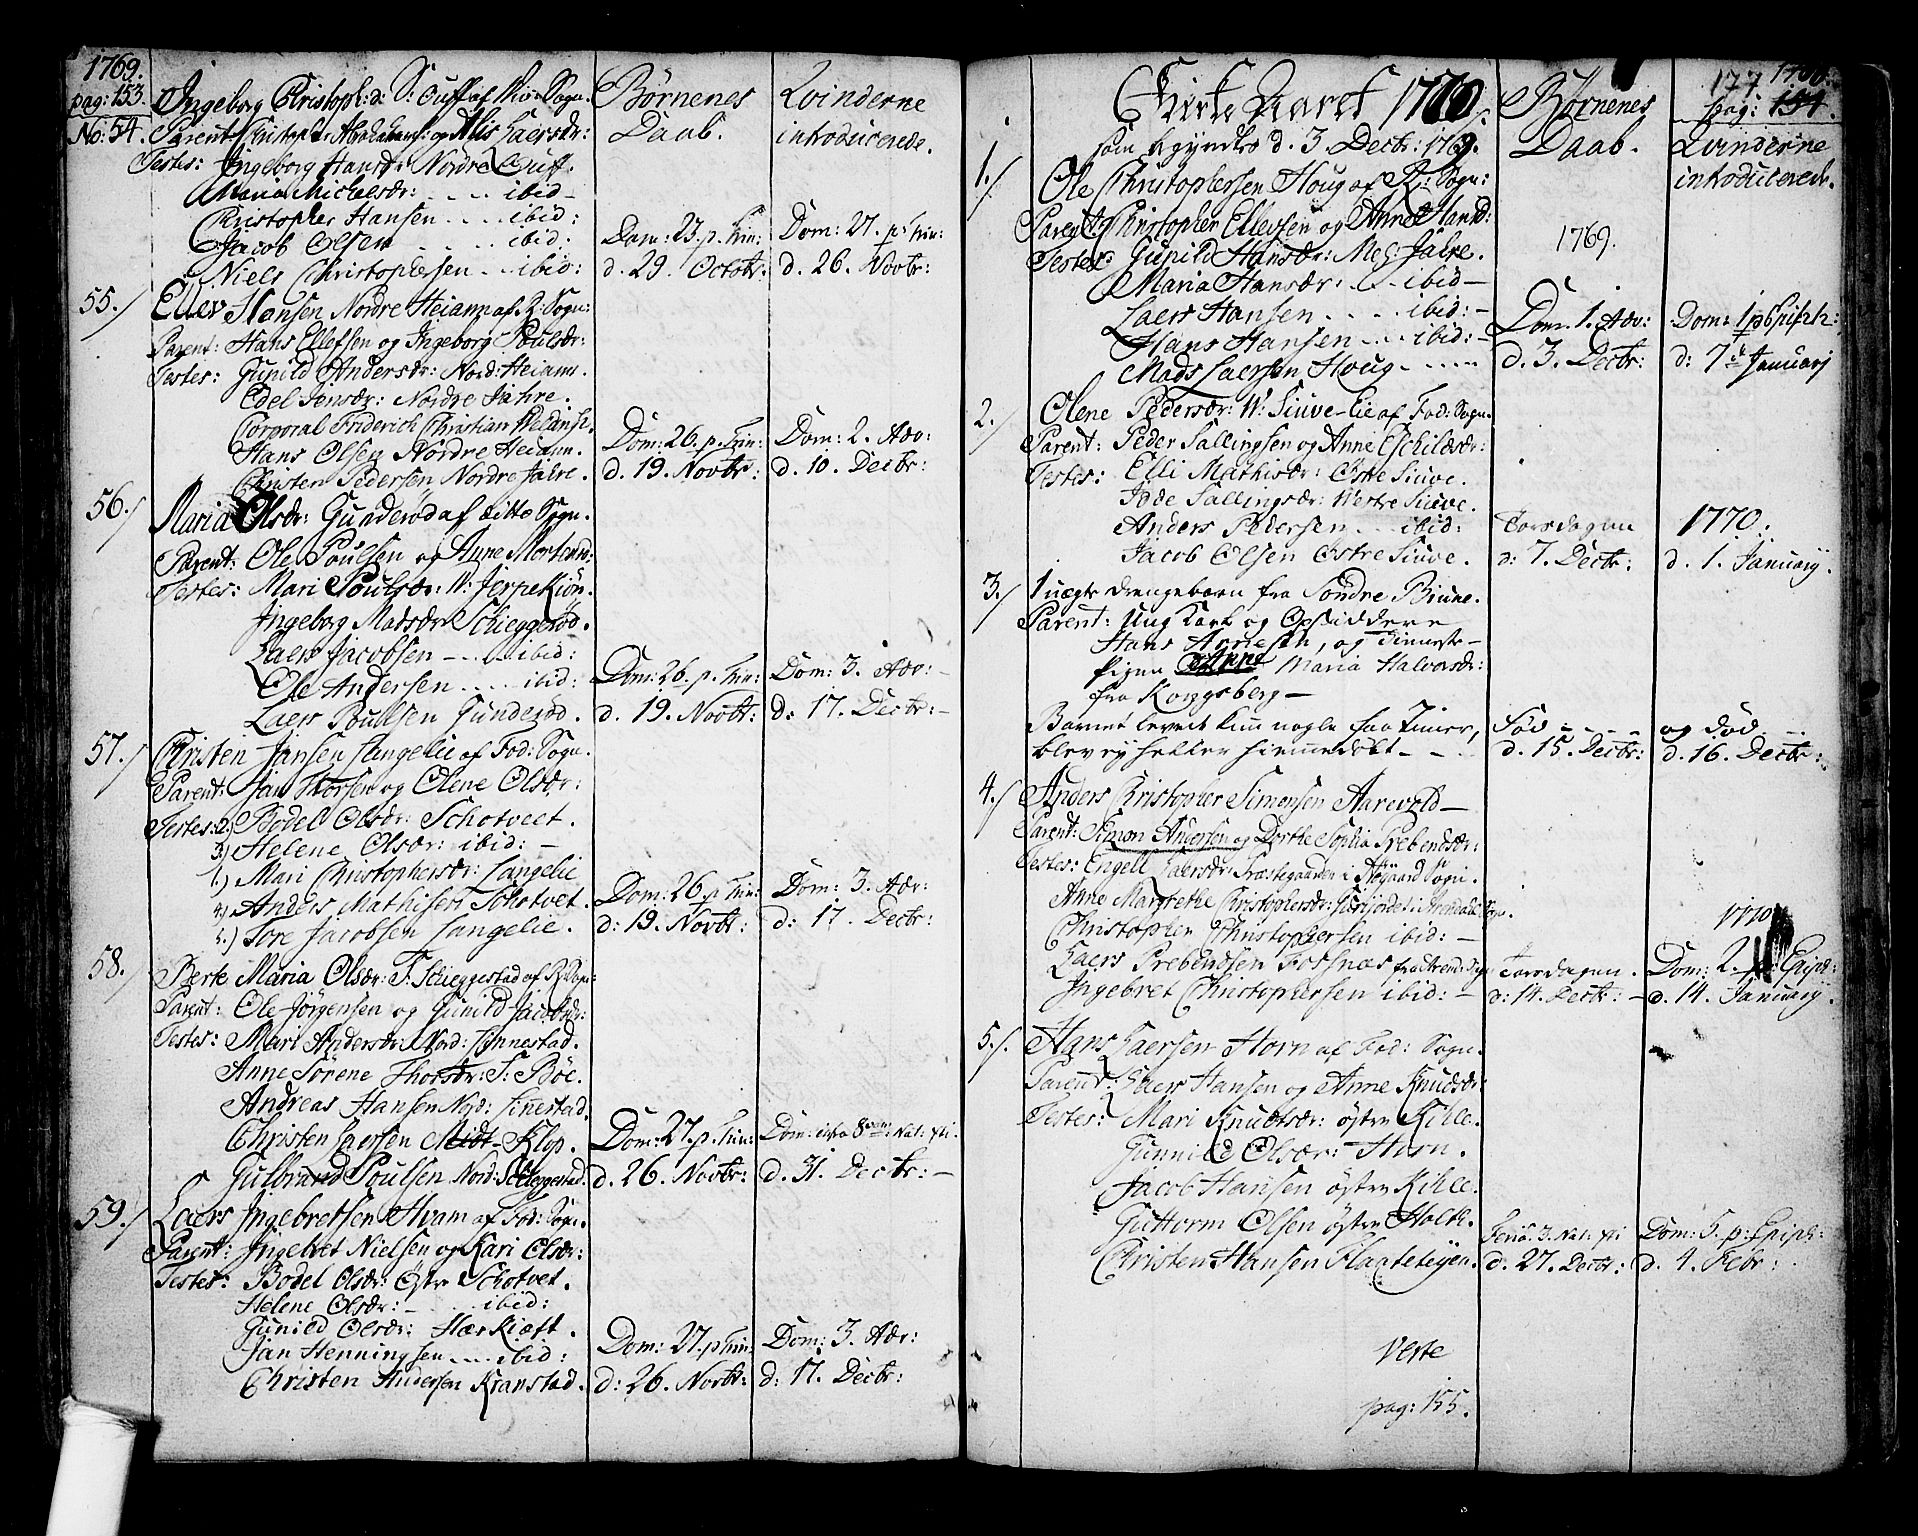 1769.
pag: 153.
No: 54.
Ingeborg Christoph: d: S: af Sogn.
Børnenes
Daab.
Qvinderne
introducerede.
Parent: Christopher og
Testes: Ingeborg Hansdr: Nordre
Maria Michelsdr: .... ibid-
Christopher Hansen .... ibid:
Jacob Olsen .... ibid:
Niels Christophersen .. ibid:
Dom: 23. p. Trin:
d. 29. Octobr:
Dom: 27. p: Trin:
d. 26. Novbr:
55./ Ellev Hansen Nordre Heiann af R: Sogn:
Parent: Hans Ellefsen og Ingeborg Poulsdr:
Testes: Gunild Andersdr: Nord: Heiann.
Edel Jensdr: Nordre Jahre.
Corporal Friderich Christian
Hans Olsen Nordre Heiann.
Christen Pedersen Nordre Jahre.
Dom: 26. p. Trin:
d. 19. Novbr:
Dom: 2. Adv:
d. 10. Decbr:
56./ Maria Olsdr: Gunderød af ditto Sogn.
Parent: Ole Poulsen og Anne
Testes: Mari Poulsdr: W: Jerpekiøn.
Ingeborg Madsdr: Schieggerød.
Laers Jacobsen ---- ibid:
Ole Andersen .... ibid:
Laers Poulsen Gunderød.
Dom: 26. p. Trin:
d. 19. Novbr:
Dom: 3. Adv: -
d: 17. Decbr: -
57./ Christen Jansen Langelie af Fod: Sogn.
Parent: Jan Thorsen og Olene Olsdr:
Testes: 2.) Bodel Olsdr: Schotvet.
3.) Helene Olsdr: ibid: -
1.) Mari Christophersdr: Langelie
4.) Anders Mathisen Schotvet.
5.) Tore Jacobsen Langelie.
Dom: 26 p Trin:
d: 19. Novbr:
Dom: 3. Adv:
d: 17. Decbr:
58./ Berte Maria Olsdr: S: Schieggestad af R: Sogn:
Parent: Ole Jörgensen og Gunild Jacobsdr:
Testes: Mari Andersdr: Nord: Linnestad.
Anne Sörene Thorsdr: S: Böe.
Andreas Hansen Nord: Linnestad.
Christen Laersen Midt-Klop.
Gulbrand Poulsen Nord: Schieggestad.
Dom: 27. p. Trin:
d. 26. Novbr:
Dom: infra 8vam: Nat: Xti.
d. 31. Decbr: -
59./ Laers Ingebretsen Hvam af Fod: Sogn.
Parent: Ingebret Nielsen og Kari Olsdr:
Testes: Bodel Olsdr: Østr Schotvet.
Helene Olsdr: - .... ibid:
Gunild Olsdr:
Jan Henningsen .... ibid:
Christen Andersen Kranstad.
Dom: 27. p Trin:
d: 26. Novbr:
Dom: 3. Adv:
d: 17. Decbr:
Kirke Aaret 1770.
som begyndtes d. 3. Decbr: 1769.
Børnenes
Daab.
177
pag: 154.
Qvinderne
introducerede.
1./ Ole Christophersen Houg af R: Sogn:
Parent: Christopher Ellevsen og Anne Hansd:
Testes: Gunild Hansdr: Jahre.
Maria Hansdr: .. ibid-
Laers Hansen .... ibid: -
Hans Hansen .... ibid: -
Mads Laersen Houg -----
1769.
Dom. 1. Adv:
d. 3. Decbr:
Dom: 1 p Epiph:
d: 7de Januarj
2./ Olene Pedersdr: W: Siuve-lie af Fod: Sogn.
Parent: Peder Sallingsen og Anne Eschildsdr:
Testes: Elli Mathisdr: Østre Siuve.
Idde Sallingsdr: Westre Siuve.
Anders Pedersen ... ibid:
Jacob Olsen Østre Siuve.
Torsdagen
d: 7. Decbr:
1770.
d. 1. Januarij.
3./ 1 uægte drengebarn fra Søndre Biune.
Parent: Ung Karl og Opsiddere
Hans Arnesen, og tieneste-
Pigen Anne Maria Halvorsdr:
fra Kongsberg -
Barnet levede kun nogle faa Timer,
blev ey heller hiemmedöbt - - -
Fød - - - -
d. 15. Decbr:
og død ...
d. 16. Decbr:
4./ Anders Christopher Simonsen Aarevold -
Parent: Simon Andersen og Dorthe Sophia Prebensdr:
Testes: Engell Laersdr: Præstegaarden i Sogn.
Anne Margrethe Christophersdr: i Sogn.
Christopher Christophersen ibid: -
Laers Prebendsen Fossnæs
Ingebret Christophersen ibid: -
Torsdagen.
d: 14. Decbr: -
1770
Dom: 2. p: Epiph:
d. 14. Januarij.
5./ Hans Laersen Horn af Fod: Sogn.
Parent: Laers Hansen og Anne Knudsdr:
Testes: Mari Knudtsdr: østre Kihle.
Gunnild Olsdr: - Horn.
Jacob Hansen østre Kihle.
Guttorm Olsen østre Holth.
Christen Hansen Flaateteigen.
Feria. 3. Nat: Xti
d. 27. Decbr:
Dom: 5. p: Epiph:
d. 4. Febr:
Verte
pag: 155.